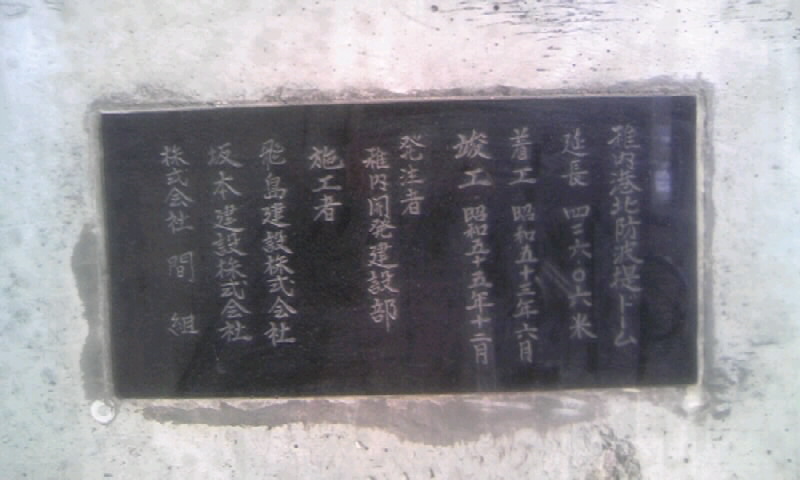 稚内港北防波堤ドーム
延長 四二六・〇六米
着工 昭和五十三年六月
竣工 昭和五十五年十二月
発注者
稚内開発建設部
施工者
飛島建設株式会社
坂本建設株式会社
株式会社 間組